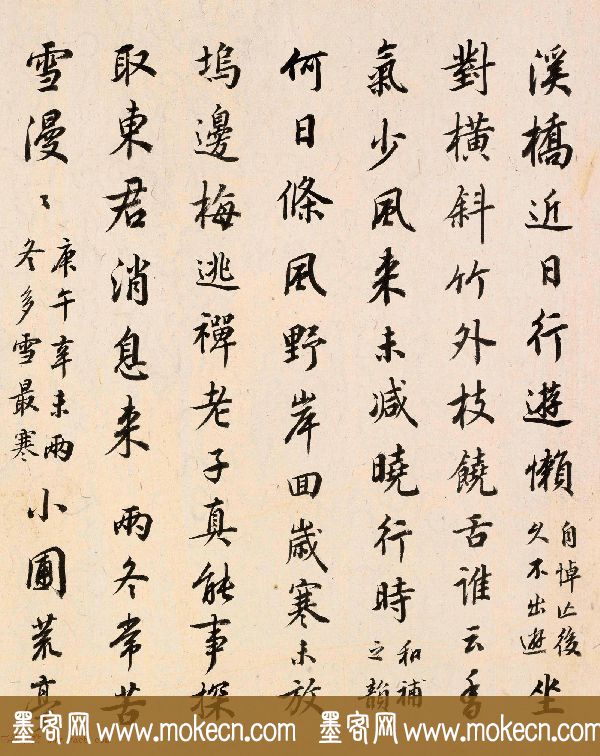 溪橋近日行遊懶
自悼亡後
久不出遊
坐
對橫斜竹外枝饒舌誰云香
氣少風来未减曉行時
和補
之韻
何日條風野岸回歲寒未放
塢邊梅逃禪老子真能事探
取東君消息来 兩冬常苦
雪漫〻
庚午辛未兩
冬多雪最寒
小圃荒
墨客网 www.mokecn.com 墨客网 www.mokecn.com